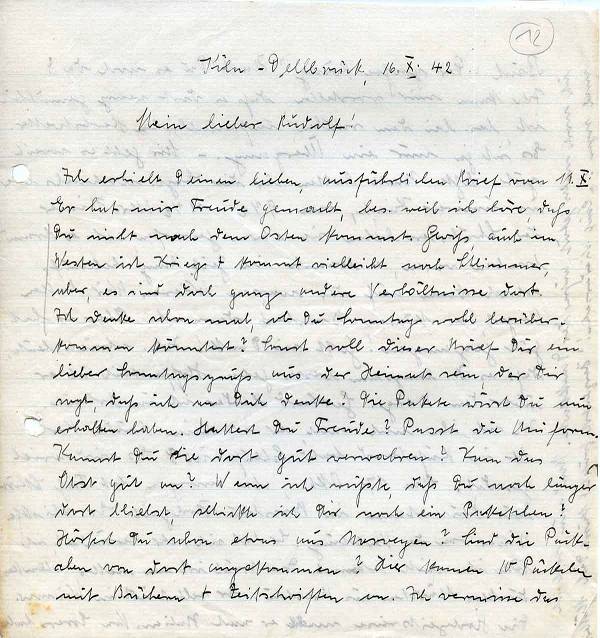 12
Köln-Dellbrück, 16. X. 42.
Mein lieber Rudolf!
Ich erhielt Deinen lieben, ausführlichen Brief vom 11. X.
Er hat mir Freude gemacht, bes. weil ich höre, daß
Du nicht nach dem Osten kommst. Gewiß, auch im
Westen ist Krieg + kommt vielleicht noch Schlimmer,
aber, es sind doch ganz andere Verhältnisse dort.
Ich denke schon mal, ob Du Sonntags wohl herüber-
kommen könntest? Sonst soll dieser Brief Dir ein
lieber Sonntagsgruß aus der Heimat sein, der Dir
sagt, daß ich an Dich denke! Die Pakete wirst Du nun
erhalten haben. Hattest Du Freude? Passt die Uniform.
Kannst Du sie dort gut verwahren? Kam das
Obst gut an? Wenn ich wüßte, daß Du noch länger
dort bliebst, schickte ich Dir noch ein Paketchen?
Hörtest Du schon etwas aus Norwegen? Sind die Päck-
chen von dort angekommen? Hier kamen 10 Päckchen
mit Büchern + Zeitschriften an. Ich vermisse das